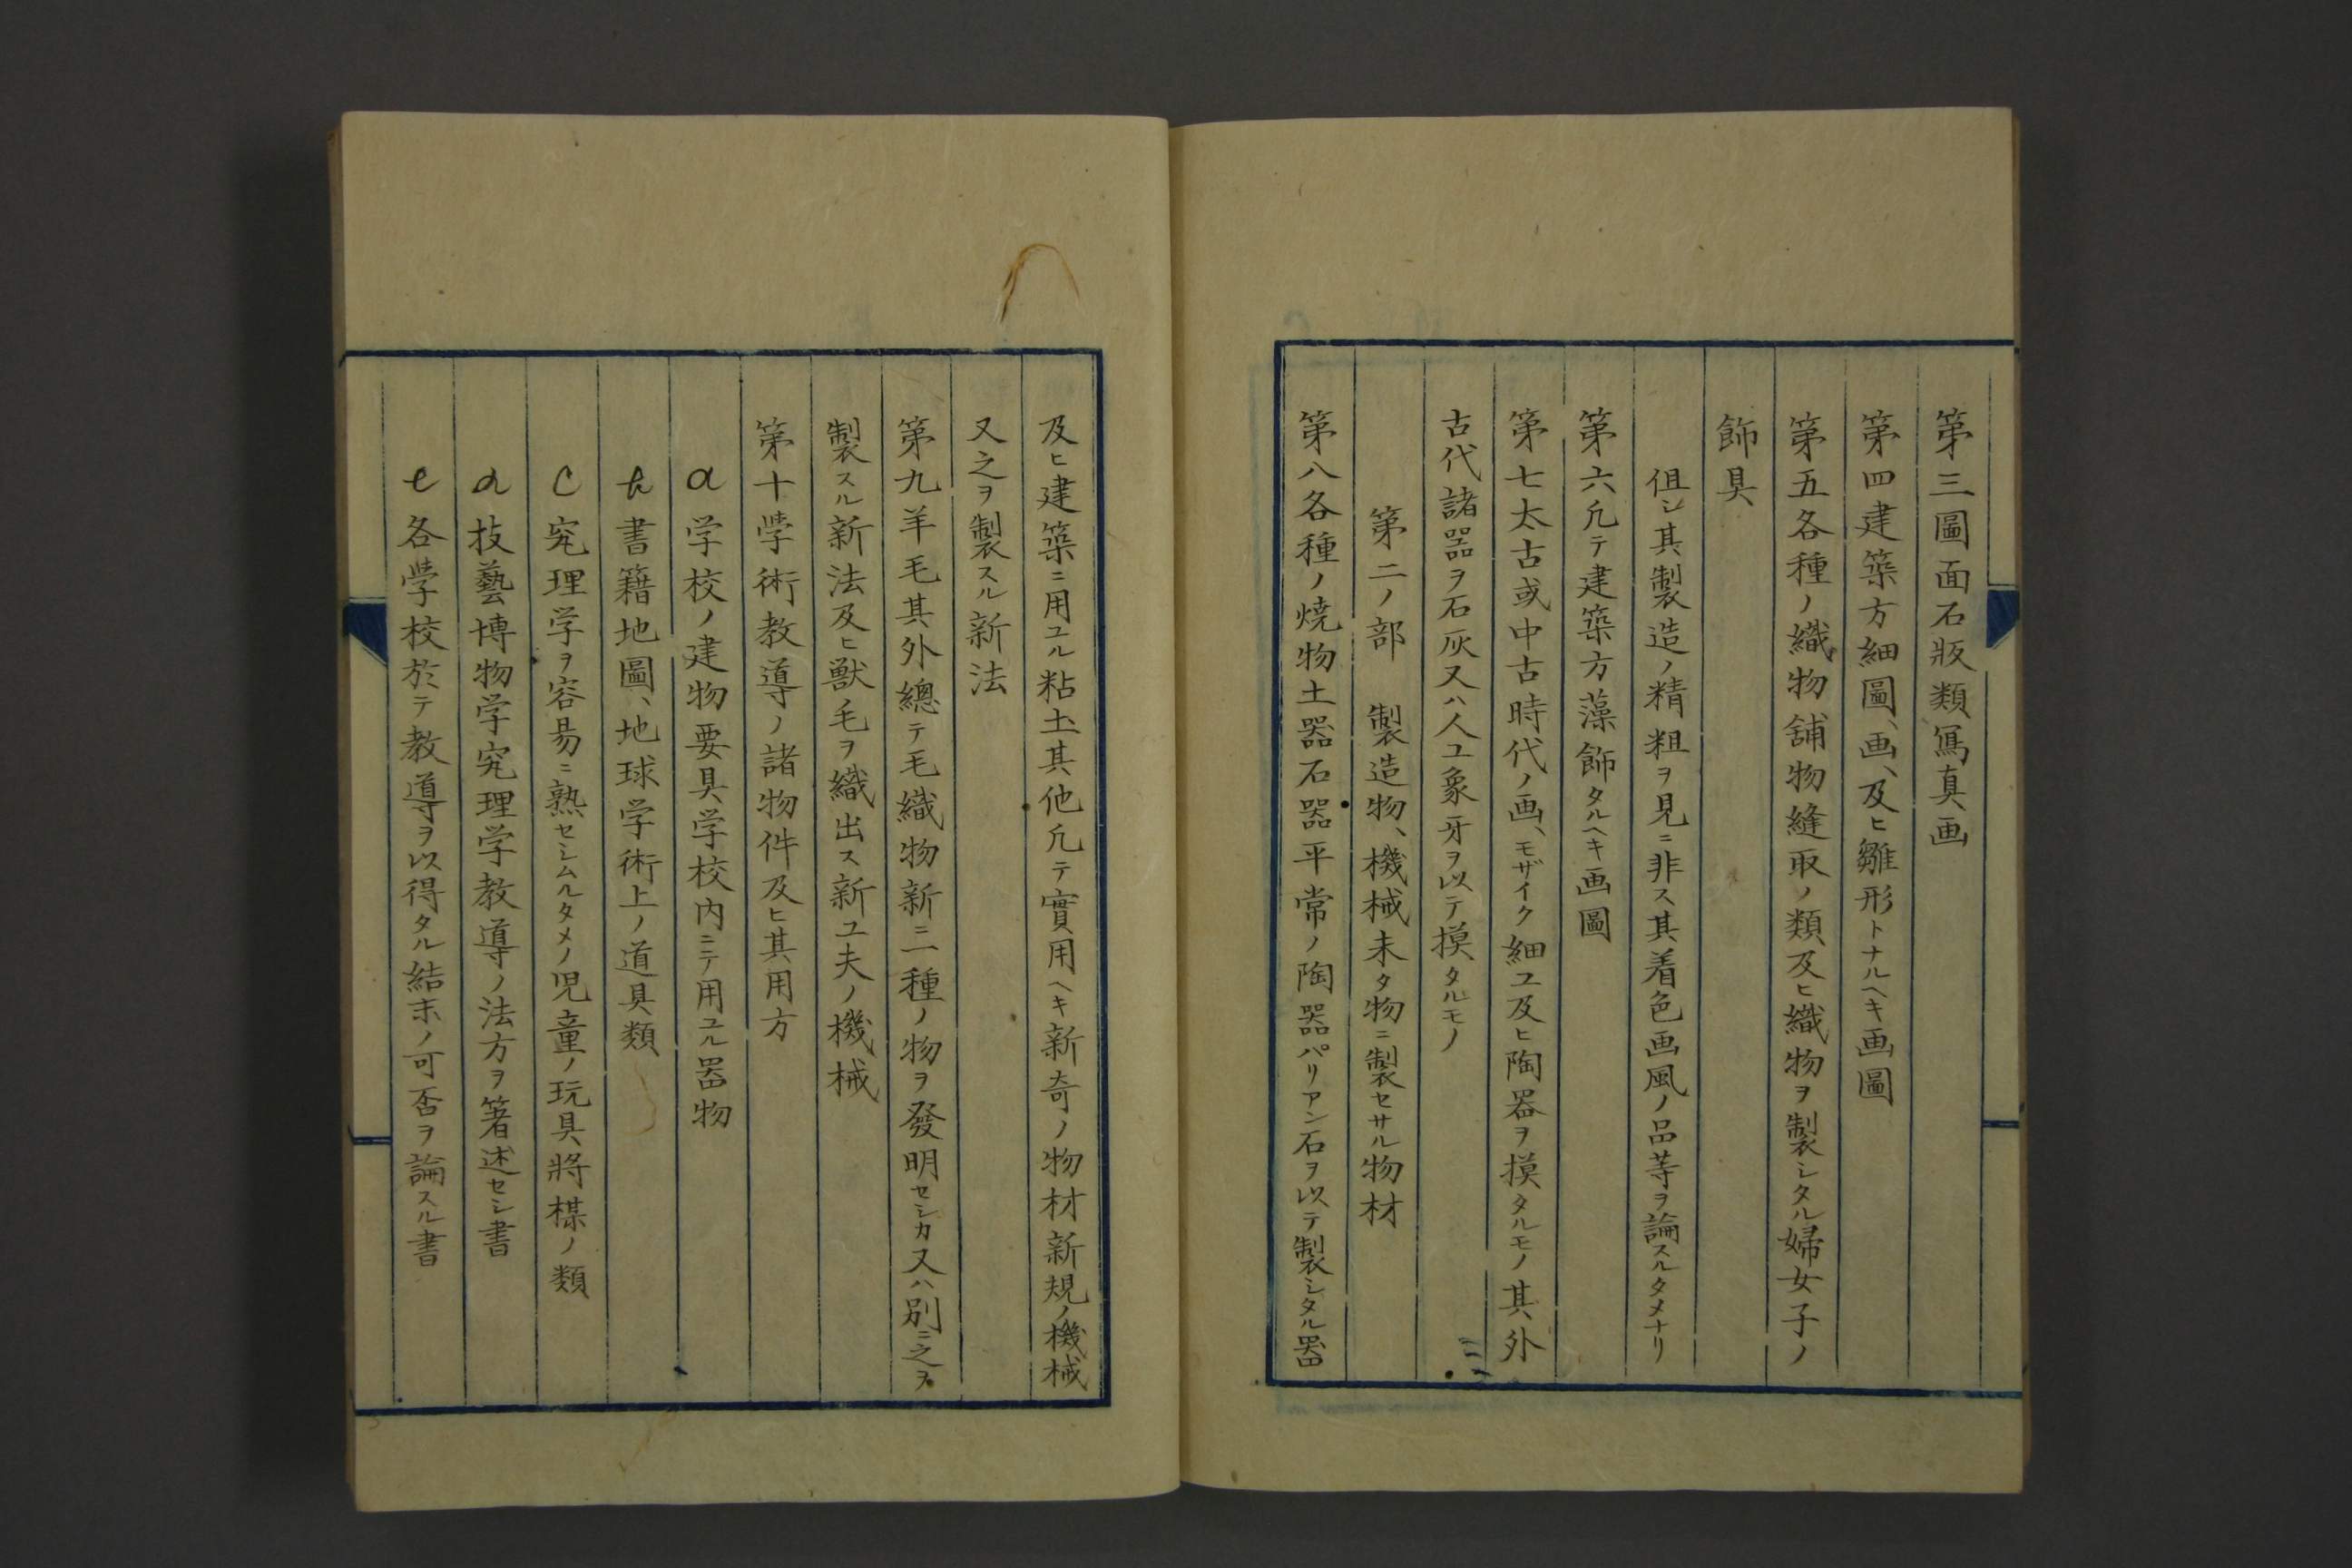 第三圖面石版類寫真画
第四建築方細圖、画、及ヒ雛形トナルヘキ画圖
第五各種ノ織物舗物縫取ノ類及ヒ織物ヲ製シタル婦女子ノ
飾具
但シ其製造ノ精粗ヲ見ニ非ス其着色画風ノ品等ヲ論スルタメナリ
第六凢テ建築方藻飾タルヘキ画圖
第七太古或中古時代ノ画、モザイク細工及ヒ陶器ヲ摸タルモノ其外
古代諸器ヲ石灰又ハ人工象牙ヲ以テ摸タルモノ
第二ノ部 製造物、機械未タ物ニ製セサル物材
第八各種ノ焼物土器石器平常ノ陶器パリアン石ヲ以テ製シタル器
及ヒ建築ニ用ユル粘土其他凢テ實用ヘキ新奇ノ物材新規ノ機械
又之ヲ製スル新法
第九羊毛其外總テ毛織物新ニ一種ノ物ヲ發明セシカ又ハ別ニ之ヲ
製スル新法及ヒ獣毛ヲ織出ス新工夫ノ機械
第十學術教導ノ諸物件及ヒ其用方
a 学校ノ建物要具学校内ニテ用ユル器物
b 書籍地圖、地球学術上ノ道具類
c 究理学ヲ容易ニ熟セシムルタメノ児童ノ玩具將棋ノ類
d 技藝博物学究理学教導ノ法方ヲ著述セシ書
e 各學校於テ教導ヲ以得タル結末ノ可否ヲ論スル書